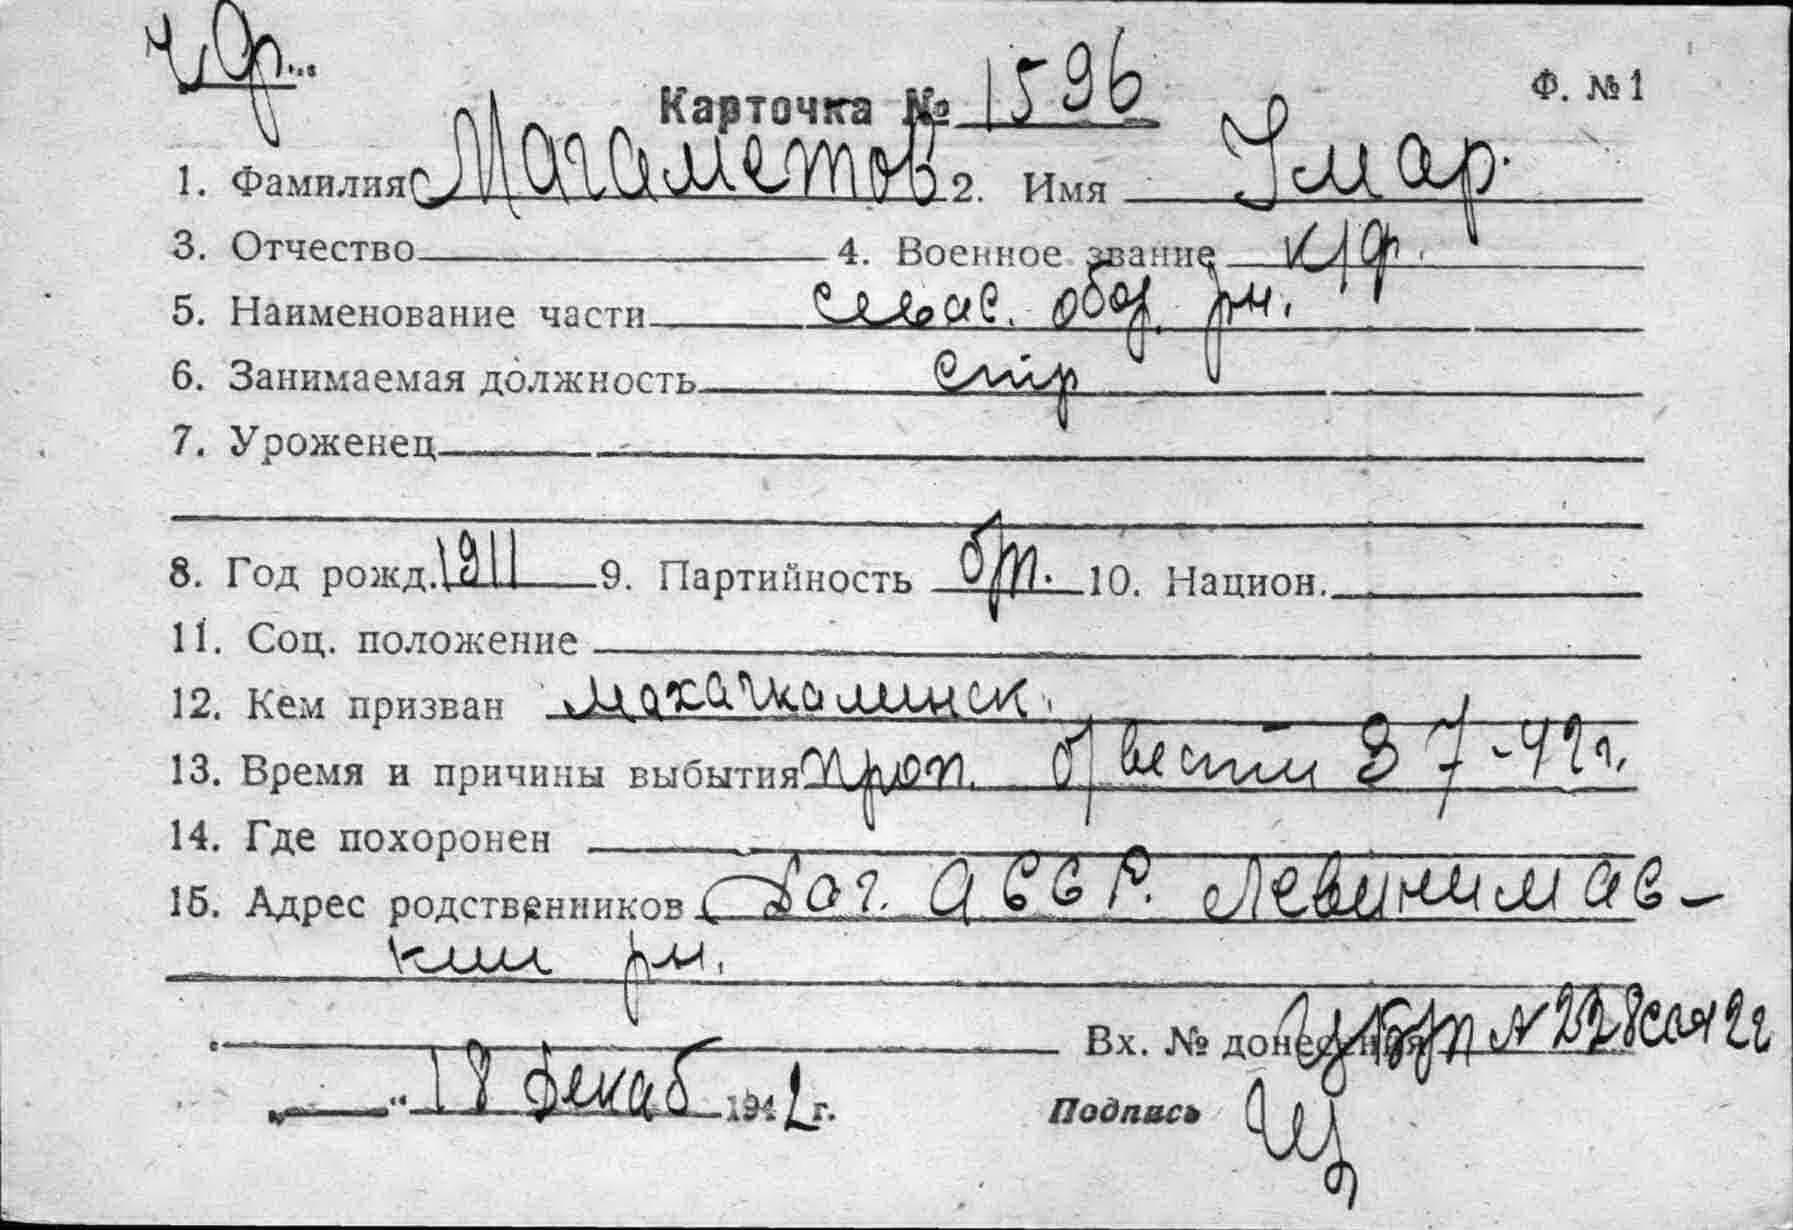 ч/ф...
Карточка № 1596 Ф. № 1
1. Фамилия Магаметов 2. Имя Умар.
3. Отчество 4. Военное звание к/ф.
5. Наименование части севас. обор. рн.
6. Занимаемая должность стр
7. Уроженец
8. Год рожд. 1911 9. Партийность б/п. 10. Национ.
11. Соц. положение
12. Кем призван махачкалинск.
13. Время и причины выбытия проп. б/вести 3 7-42г.
14. Где похоронен
15. Адрес родственников Даг. АССР. Левинимас-
кии рн.
Вх. № донесения № 228
„ “ 18 Декаб 1942 г. Подпись